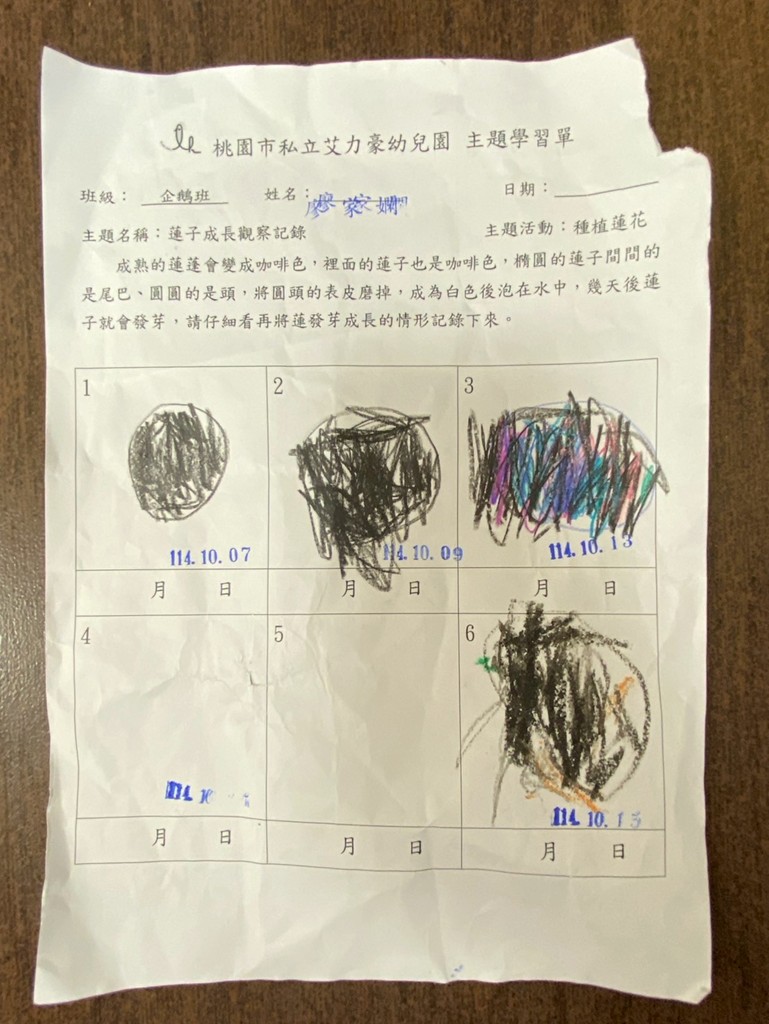 桃園市私立艾力豪幼兒園 主題學習單
班級： 企鵝班 姓名：廖家嫻 日期：
主題名稱：蓮子成長觀察記錄 主題活動：種植蓮花
成熟的蓮蓬會變成咖啡色，裡面的蓮子也是咖啡色，橢圓的蓮子間間的
是尾巴、圓圓的是頭，將圓頭的表皮磨掉，成為白色後泡在水中，幾天後蓮
子就會發芽，請仔細看再將蓮發芽成長的情形記錄下來。
1 2 3
114.10.07 114.10.09 114.10.13
月 日 月 日 月 日
4 5 6
114.10 114.10.13
月 日 月 日 月 日